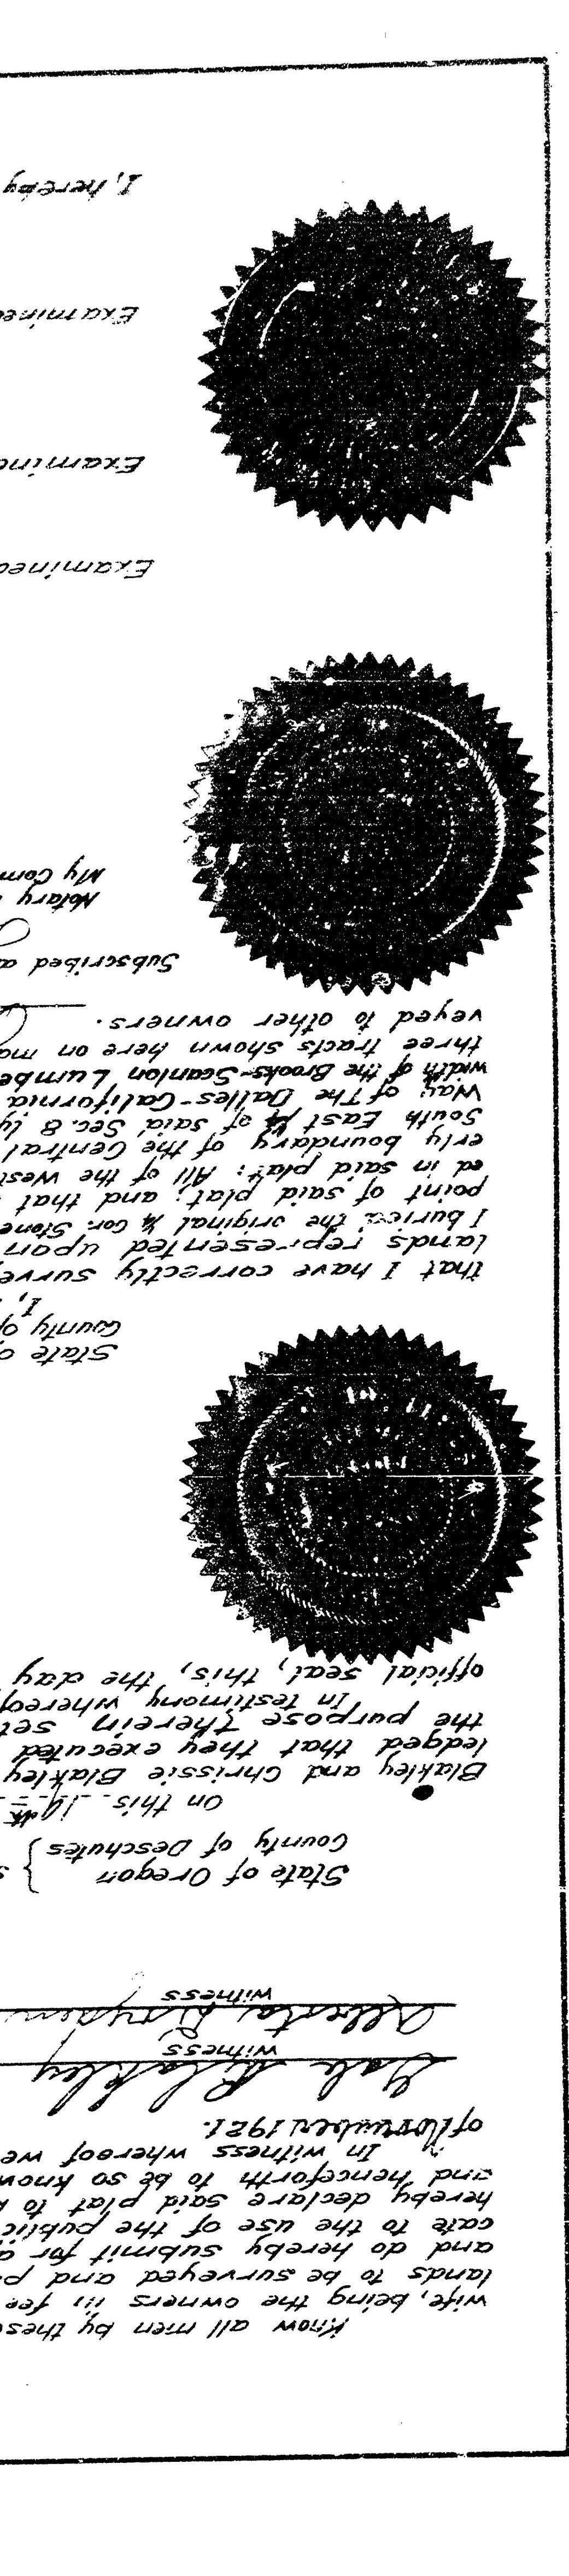 Know all men by these
wife, being the owners in fee
lands to be surveyed and p
and do hereby submit for a
cate to the use of the public
hereby declare said plat to
and henceforth to be so know
In witness whereof we
of November 1921.
Gale Blakley
witness
Alberta
witness
State of Oregon }
County of Deschutes
On this 19th
Blakley and Chrissie Blakley
ledged that they executed
the purpose therein set
In testimony whereof
official seal, this, the day
State o
County of
I,
that I have correctly surve
lands represented upon
I buried the original ¼ Cor. Stone
point of said plat; and that
ed in said plat: All of the West
erly boundary of the Central
South East ¼ of said Sec. 8 ly
Way of The Dalles-California
width of the Brooks-Scanlon Lumbe
three tracts shown here on ma
veyed to other owners.
Subscribed a
Notary
My Com
Examined
Examined
Examined
I, hereby